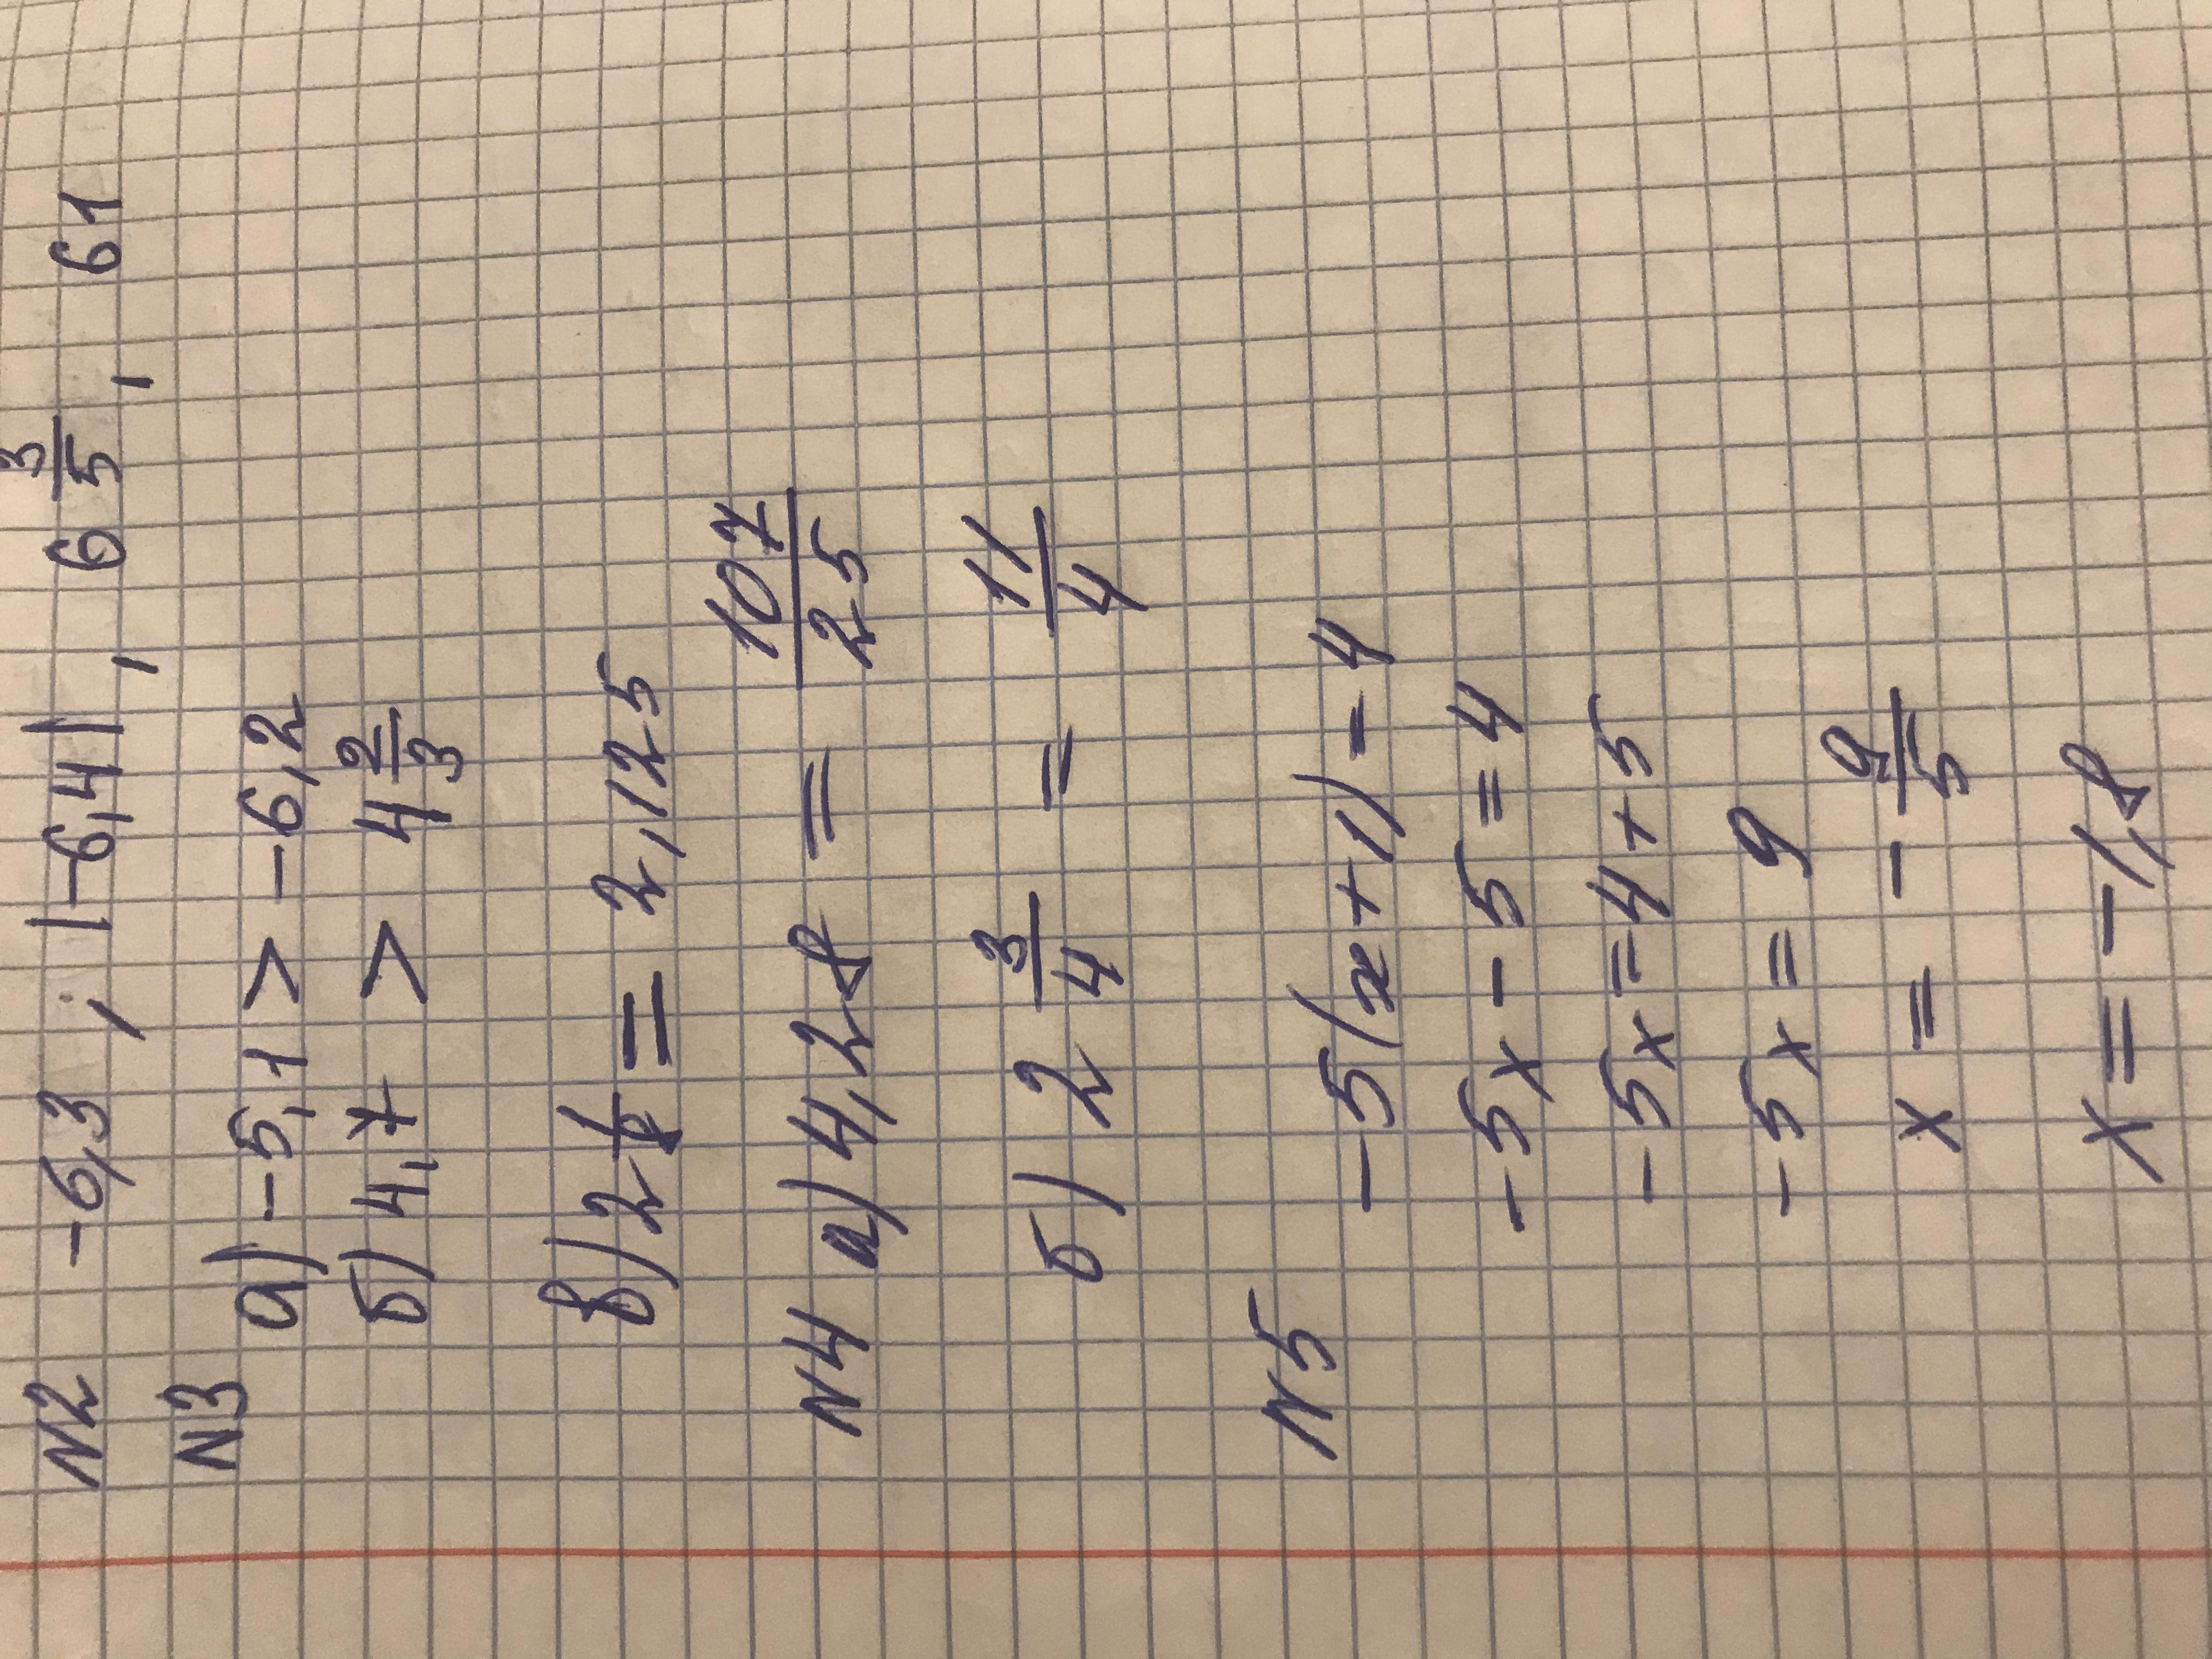 N2 -6,3 ; |-6,4| , 6 3/5 , 61
N3
а) -5,1 > -6,2
б) 4,7 > 4 2/3
в) 2 1/8 = 2,125
N4 а) 4,28 = 107/25
б) 2 3/4 = 11/4
N5
-5(x+1) = 4
-5x - 5 = 4
-5x = 4 + 5
-5x = 9
x = - 9/5
x = -1,8